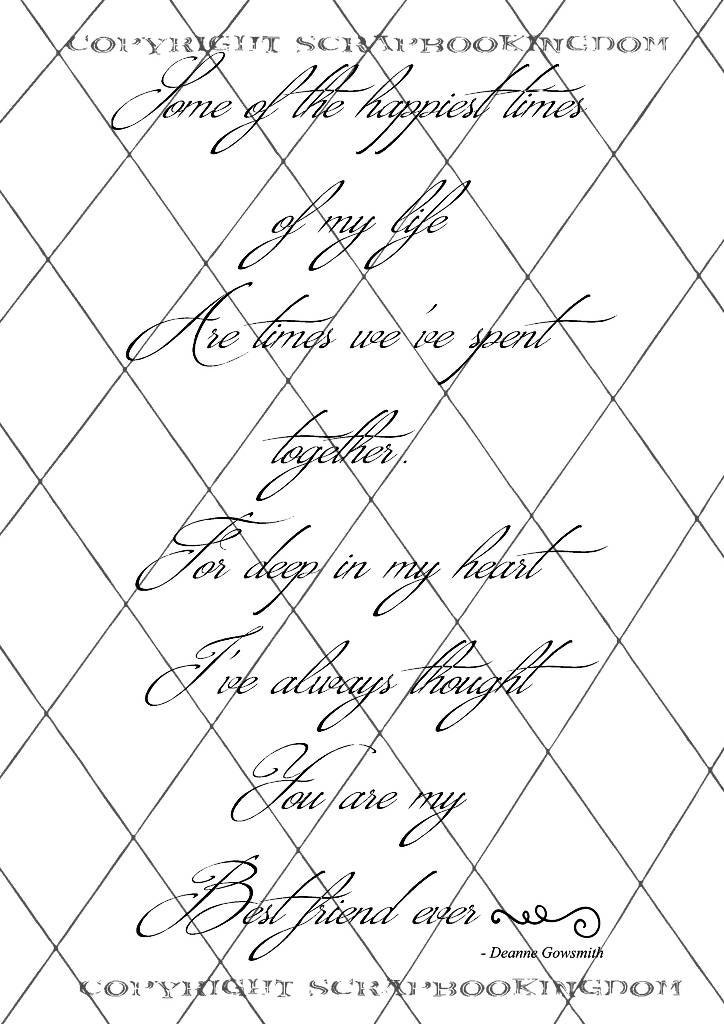 COPYRIGHT SCRAPBOOKINGDOM
Some of the happiest times
of my life
Are times we've spent
together.
For deep in my heart
I've always thought
You are my
Best friend ever
- Deanne Gowsmith
COPYRIGHT SCRAPBOOKINGDOM